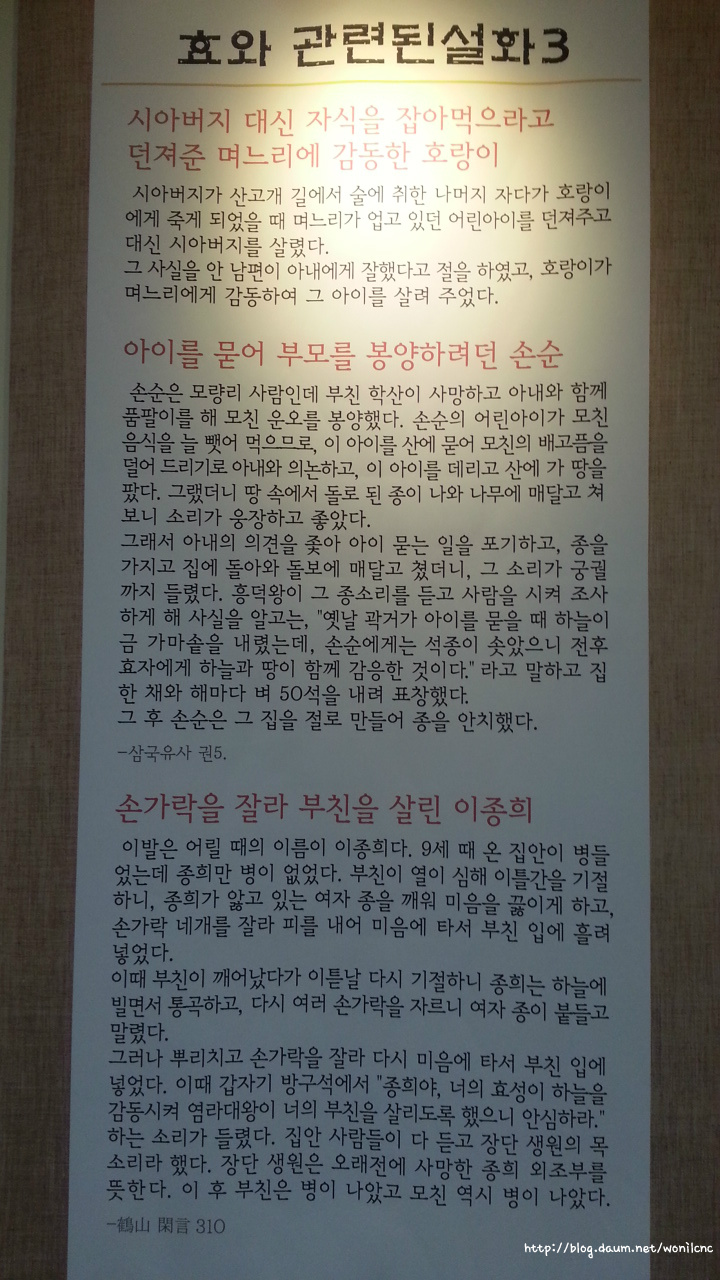 효와 관련된설화3
시아버지 대신 자식을 잡아먹으라고
던져준 며느리에 감동한 호랑이
시아버지가 산고개 길에서 술에 취한 나머지 자다가 호랑이
에게 죽게 되었을 때 며느리가 업고 있던 어린아이를 던져주고
대신 시아버지를 살렸다.
그 사실을 안 남편이 아내에게 잘했다고 절을 하였고, 호랑이가
며느리에게 감동하여 그 아이를 살려 주었다.
아이를 묻어 부모를 봉양하려던 손순
손순은 모량리 사람인데 부친 학산이 사망하고 아내와 함께
품팔이를 해 모친 운오를 봉양했다. 손순의 어린아이가 모친
음식을 늘 뺏어 먹으므로, 이 아이를 산에 묻어 모친의 배고픔을
덜어 드리기로 아내와 의논하고, 이 아이를 데리고 산에 가 땅을
팠다. 그랬더니 땅 속에서 돌로 된 종이 나와 나무에 매달고 쳐
보니 소리가 웅장하고 좋았다.
그래서 아내의 의견을 좇아 아이 묻는 일을 포기하고, 종을
가지고 집에 돌아와 돌보에 매달고 쳤더니, 그 소리가 궁궐
까지 들렸다. 흥덕왕이 그 종소리를 듣고 사람을 시켜 조사
하게 해 사실을 알고는, "옛날 곽거가 아이를 묻을 때 하늘이
금 가마솥을 내렸는데, 손순에게는 석종이 솟았으니 전후
효자에게 하늘과 땅이 함께 감응한 것이다." 라고 말하고 집
한 채와 해마다 벼 50석을 내려 표창했다.
그 후 손순은 그 집을 절로 만들어 종을 안치했다.
-삼국유사 권5.
손가락을 잘라 부친을 살린 이종희
이발은 어릴 때의 이름이 이종희다. 9세 때 온 집안이 병들
었는데 종희만 병이 없었다. 부친이 열이 심해 이틀간을 기절
하니, 종희가 앓고 있는 여자 종을 깨워 미음을 끓이게 하고,
손가락 네개를 잘라 피를 내어 미음에 타서 부친 입에 흘려
넣었다.
이때 부친이 깨어났다가 이튿날 다시 기절하니 종희는 하늘에
빌면서 통곡하고, 다시 여러 손가락을 자르니 여자 종이 붙들고
말렸다.
그러나 뿌리치고 손가락을 잘라 다시 미음에 타서 부친 입에
넣었다. 이때 갑자기 방구석에서 "종희야, 너의 효성이 하늘을
감동시켜 염라대왕이 너의 부친을 살리도록 했으니 안심하라."
하는 소리가 들렸다. 집안 사람들이 다 듣고 장단 생원의 목
소리라 했다. 장단 생원은 오래전에 사망한 종희 외조부를
뜻한다. 이 후 부친은 병이 나았고 모친 역시 병이 나았다.
-鶴山 閑言 310
http://blog.daum.net/wonilcnc